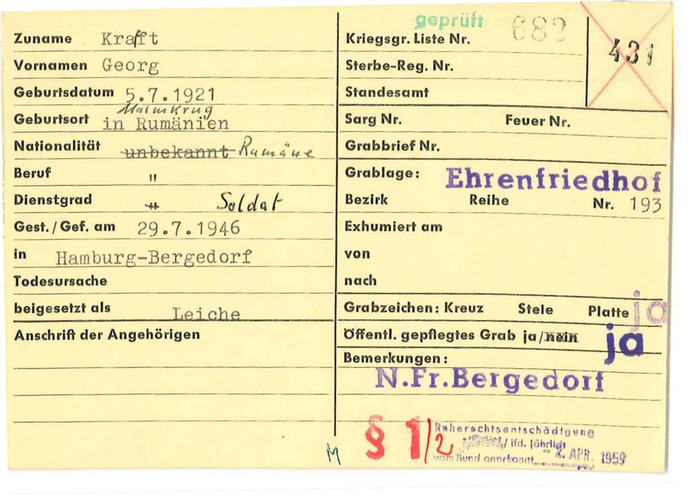 Zuname Kraft
Vornamen Georg
Geburtsdatum 5.7.1921
Malmkrug
Geburtsort in Rumänien
Nationalität unbekannt Rumäne
Beruf "
Dienstgrad " Soldat
Gest./Gef. am 29.7.1946
in Hamburg-Bergedorf
Todesursache
beigesetzt als Leiche
Anschrift der Angehörigen
M
geprüft
Kriegsgr. Liste Nr. 682
431
Sterbe-Reg. Nr.
Standesamt
Sarg Nr. Feuer Nr.
Grabbrief Nr.
Grablage: Ehrenfriedhof
Bezirk Reihe Nr. 193
Exhumiert am
von
nach
Grabzeichen: Kreuz Stele Platte ja
Öffentl. gepflegtes Grab ja/nein ja
Bemerkungen:
N.Fr.Bergedorf
§ 1/2
Ruherechtsentschädigung
/ lfd. jährlich
vom Bund anerkannt 2. APR. 1959